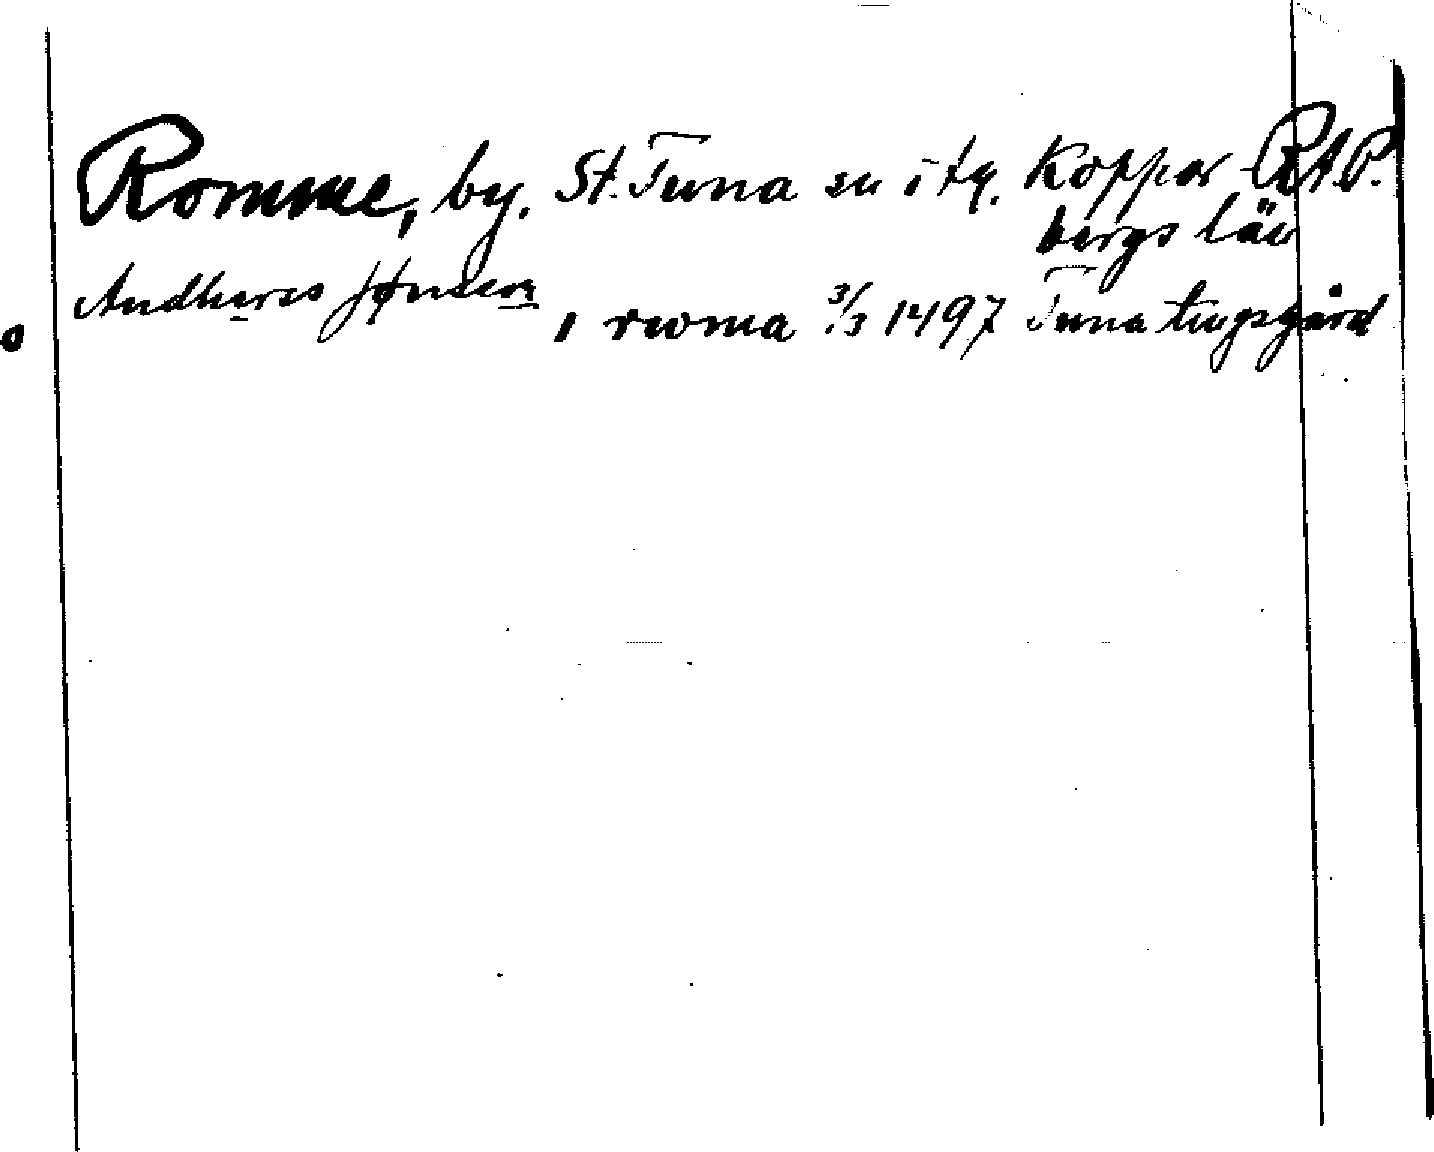 Romme, by. St. Tuna sn i tg. Koppar- RAP.
bergs län
Andhærss Jønsson i rwma 3/3 1497 Tuna tingsgård